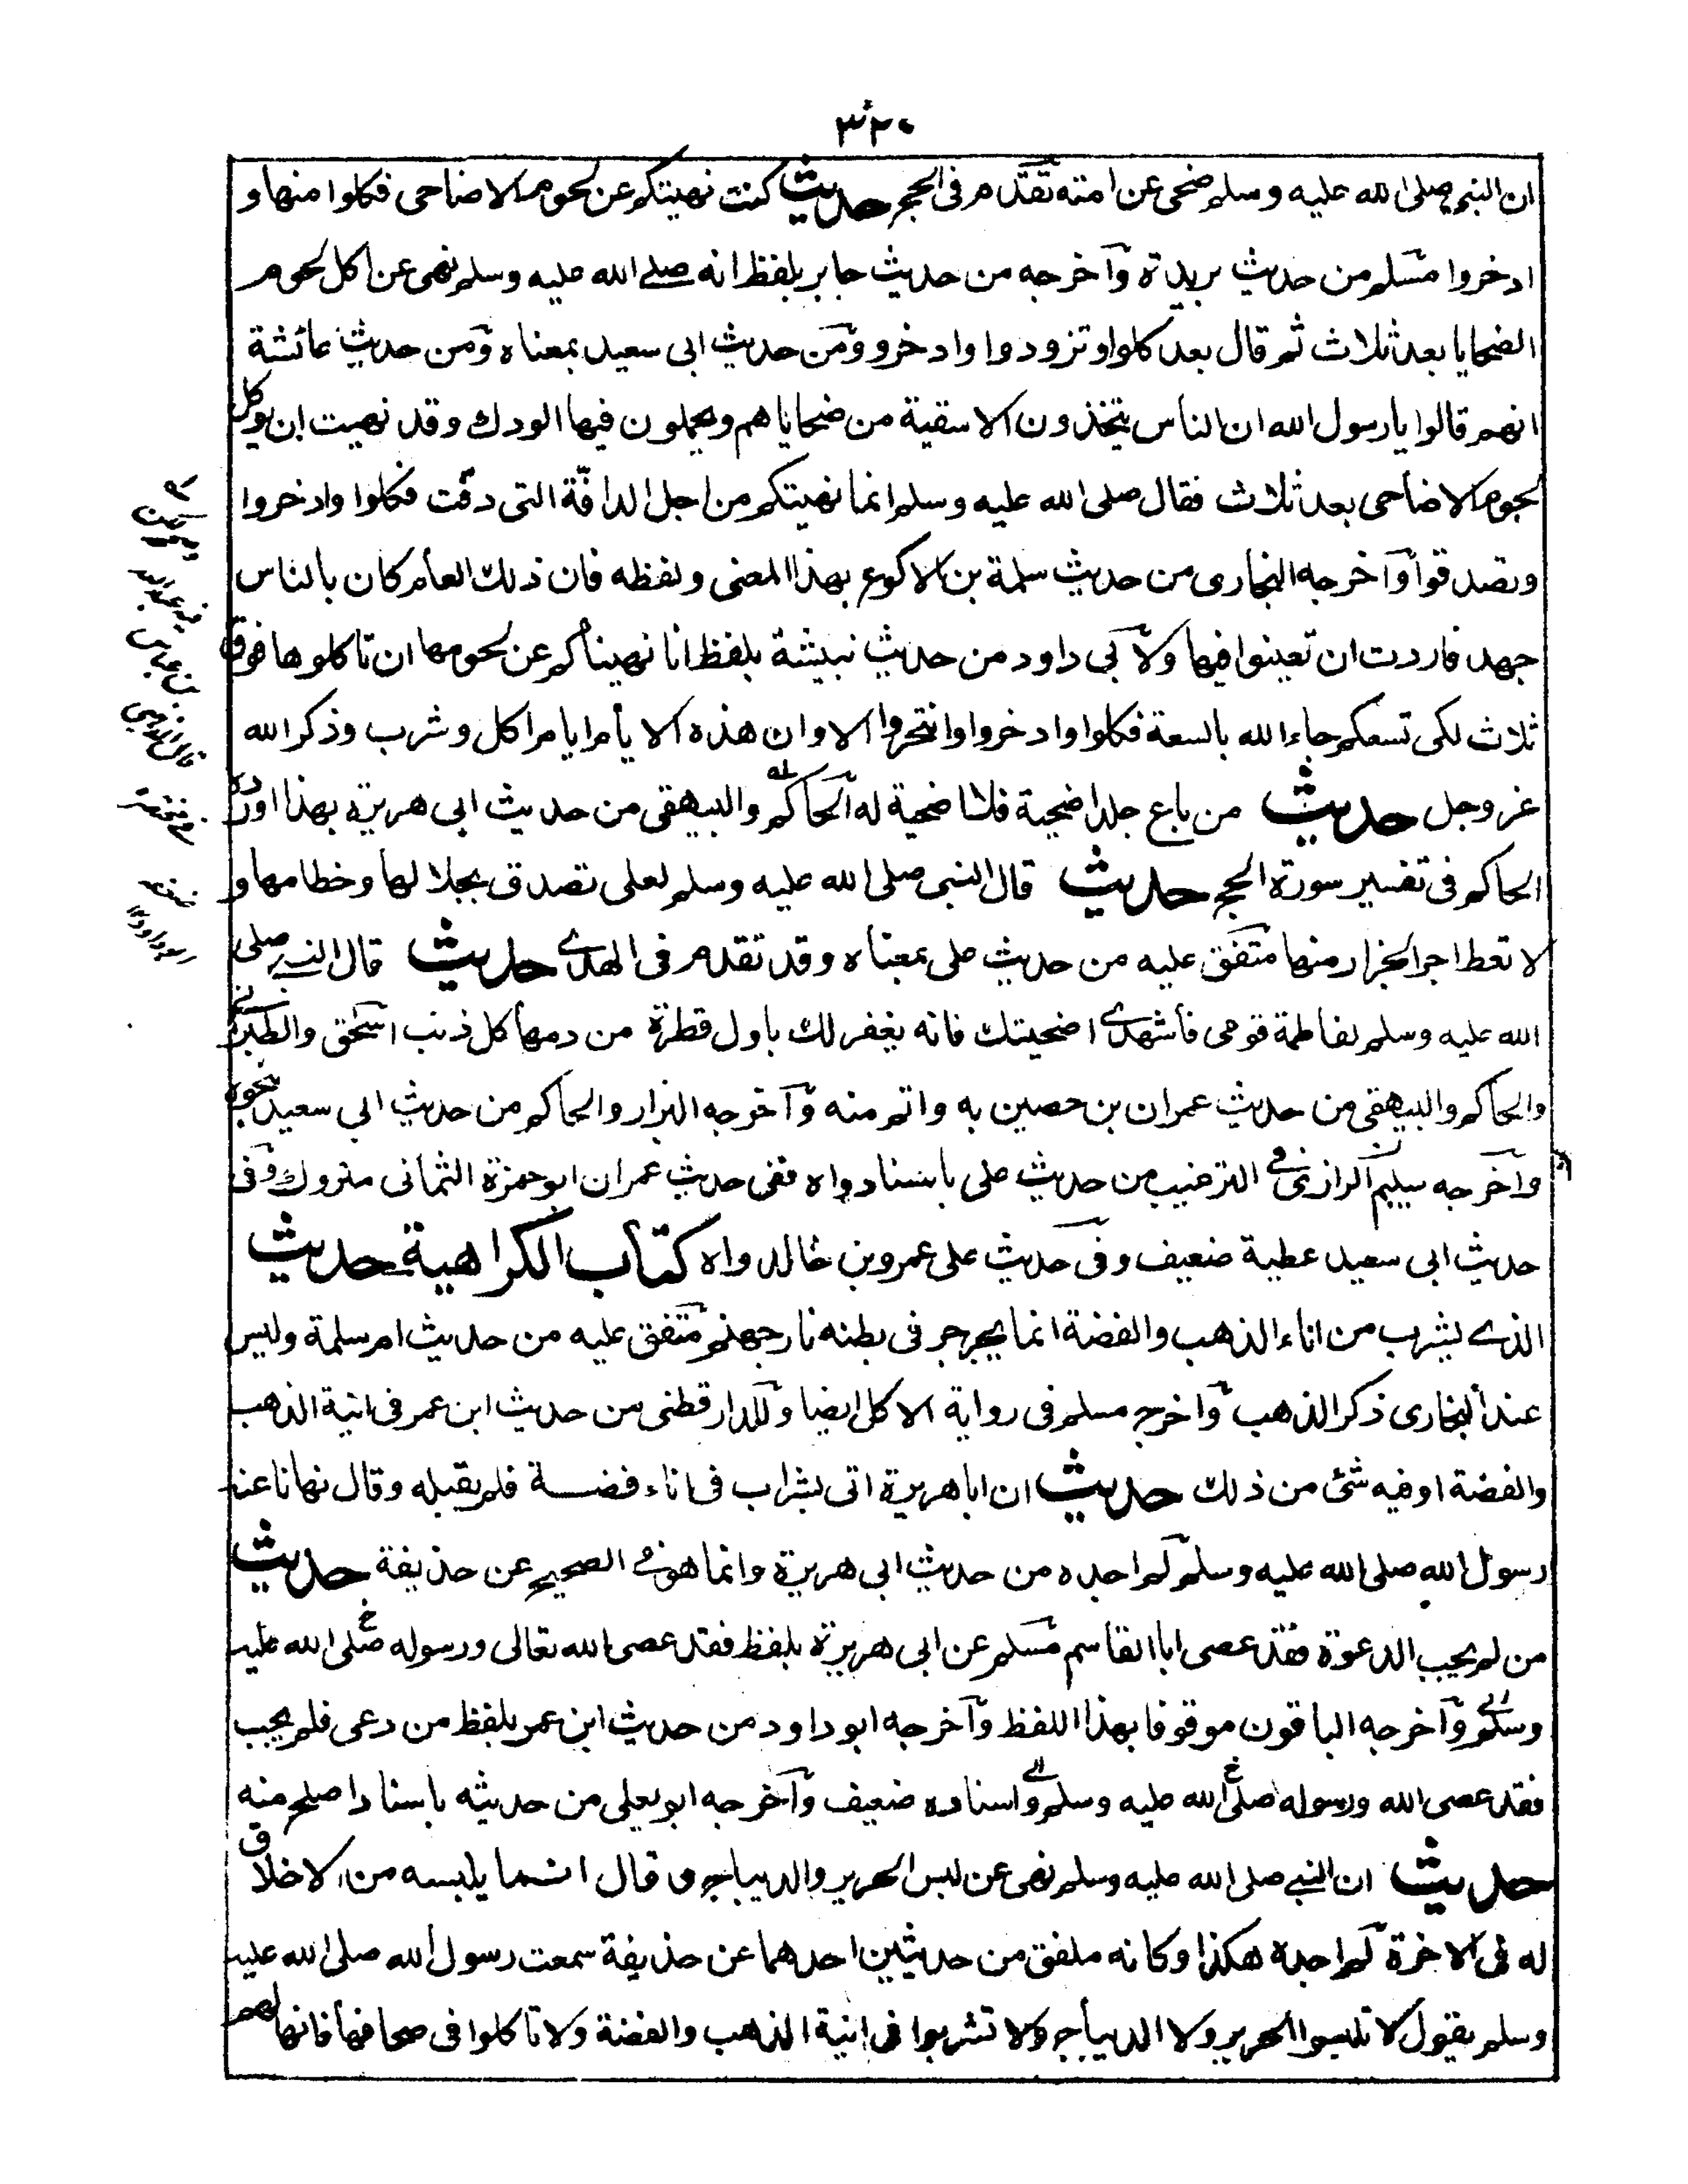 ٣٢٠
ان النبى صلى الله عليه وسلم ضحى عن امته تقدم فى الحج حديث كنت نهيتكم عن لحوم الاضاحى فكلوا منها و
ادخروا مسلم من حديث بريدة وآخرجه من حديث جابر بلفظ انه صلے الله عليه وسلم نهى عن اكل لحوم
الضحايا بعد ثلاث ثم قال بعد كلوا وتزودوا وادخروا ومن حديث ابى سعيد بمعناه ومن حديث عائشة
انهم قالوا يا رسول الله ان الناس يتخذون الاسقية من ضحاياهم ويجملون فيها الودك وقد نهيت ان يوكل
لحوم الاضاحى بعد ثلاث فقال صلى الله عليه وسلم انما نهيتكم من اجل الدافّة التى دفّت فكلوا وادخروا
وتصدقوا وآخرجه البخارى من حديث سلمة بن الاكوع بهذا المعنى ولفظه فان ذلك العام كان بالناس
جهد فاردت ان تعينوا فيها ولآبى داود من حديث نبيشة بلفظ انا نهيناكم عن لحومها ان تاكلوها فوق
ثلاث لكى تسعكم جاء الله بالسعة فكلوا وادخروا وانتجروا الا وان هذه الايام ايام اكل وشرب وذكر الله
عز وجل حديث من باع جلد اضحية فلا اضحية له الحاكم والبيهقى من حديث ابى هريرة بهذا اورده
الحاكم فى تفسير سورة الحج حديث قال النبى صلى الله عليه وسلم لعلى تصدق بجلالها وخطامها و
لا تعط اجر الجزار منها متفق عليه من حديث على بمعناه وقد تقدم فى الهدے حديث قال النبے صلى
الله عليه وسلم لفاطمة قومى فاشهدے اضحيتك فانه يغفر لك باول قطرة من دمها كل ذنب اسحق والطبرانے
والحاكم والبيهقى من حديث عمران بن حصين به واتم منه وآخرجه البزار والحاكم من حديث ابى سعيد نحوه
وآخرجه سليم الرازى فے الترغيب من حديث على باسناد واه ففى حديث عمران ابو حمزة الثمالى متروك وفى
حديث ابى سعيد عطية ضعيف وفى حديث على عمرو بن خالد واه كتاب الكراهية حديث
الذے يشرب من اناء الذهب والفضة انما يجرجر فى بطنه نار جهنم متفق عليه من حديث ام سلمة وليس
عند البخارى ذكر الذهب وآخرجه مسلم فى رواية الاكل ايضا وللدارقطنى من حديث ابن عمر فى انية الذهب
والفضة او فيه شئ من ذلك حديث ان اباهريرة اتى بشراب فى اناء فضة فلم يقبله وقال نهانا عنه
رسول الله صلى الله عليه وسلم لم اجده من حديث ابى هريرة وانما هو فے الصحيح عن حذيفة حديث
من لم يجب الدعوة فقد عصى ابا القاسم مسلم عن ابى هريرة بلفظ فقد عصى الله تعالى ورسوله صلى الله عليه
وسلم وآخرجه الباقون موقوفا بهذا اللفظ وآخرجه ابو داود من حديث ابن عمر بلفظ من دعى فلم يجب
فقد عصى الله ورسوله صلى الله عليه وسلم واسناده ضعيف وآخرجه ابو يعلى من حديثه باسناد اصلح منه
حديث ان النبے صلى الله عليه وسلم نهى عن لبس الحرير والديباج و قال انما يلبسه من لاخلاق
له فى الاخرة لم اجده هكذا وكانه ملفق من حديثين احدهما عن حذيفة سمعت رسول الله صلى الله عليه
وسلم يقول لا تلبسوا الحرير ولا الديباج ولا تشربوا فى انية الذهب والفضة ولا تاكلوا فى صحافها فانها لهم